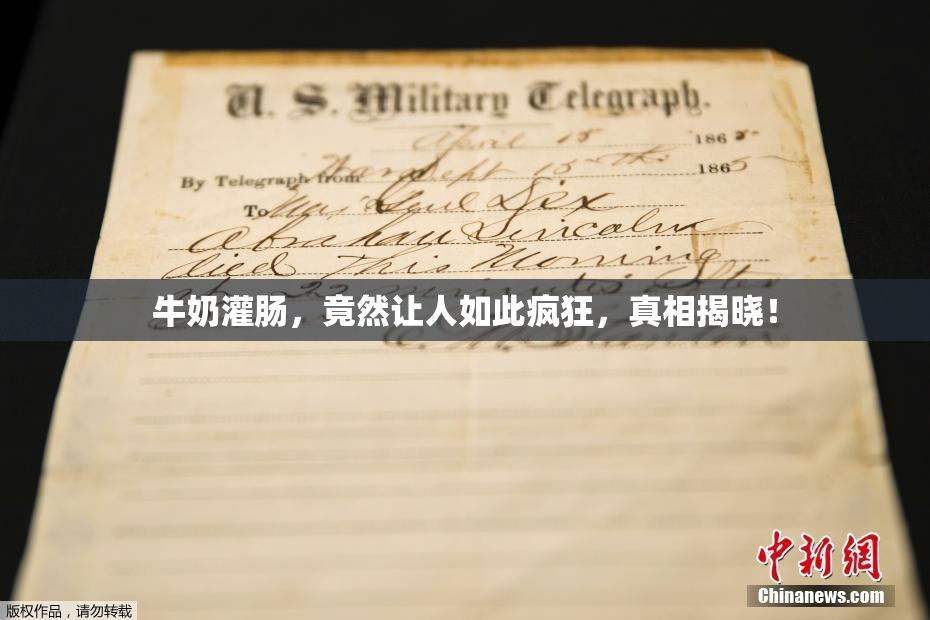 U. S. Military Telegraph.
April 15 1865
By Telegraph from War Dept 15th 1865
To Maj Genl Dix
Abraham Lincoln
died This Morning
at 22 minutes after
牛奶灌肠，竟然让人如此疯狂，真相揭晓！
E. M. Stanton
中新網
Chinanews.com
版权作品，请勿转载